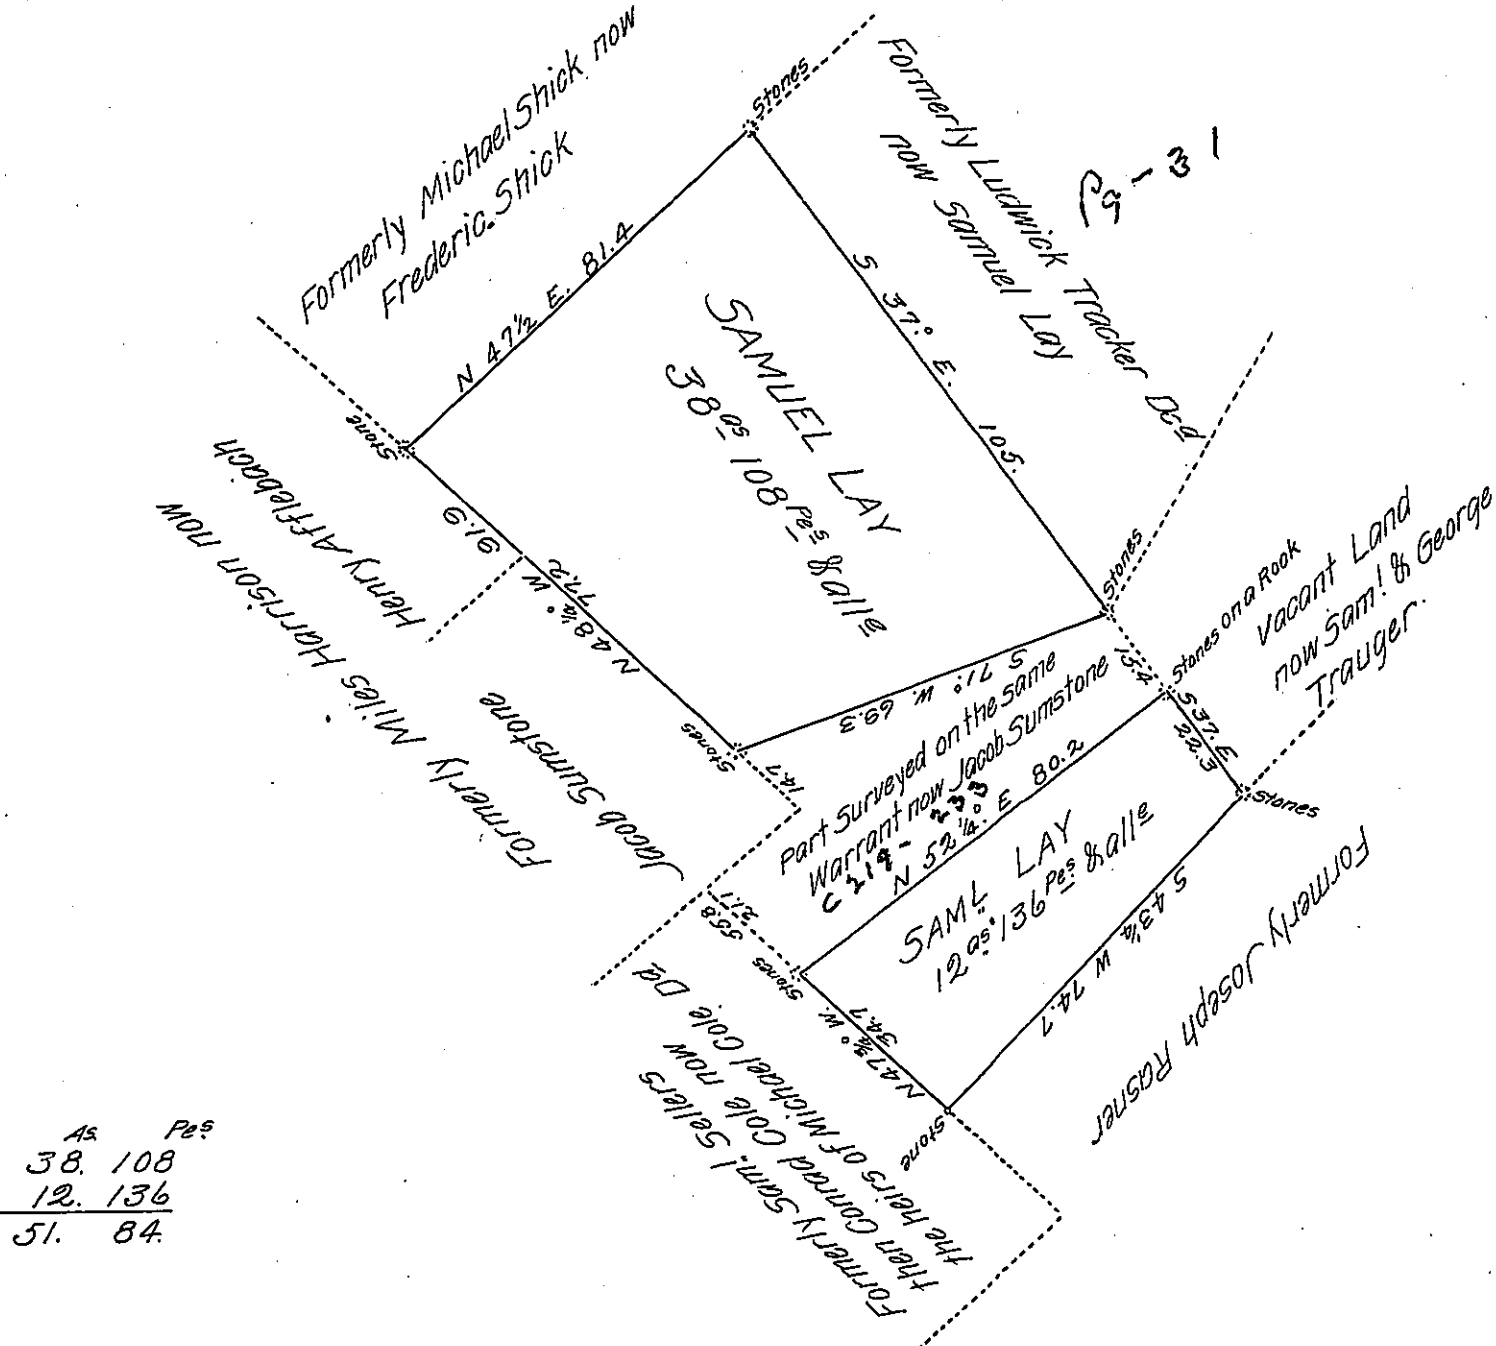 Formerly Michael Shick now
Frederic. Shick
Stones
Formerly Ludwick Tracker Dcd
now Samuel Lay
Pg-31
N 47½ E. 81.4
S 37.° E. 105.
SAMUEL LAY
38 as 108 Pes & alle
Stone
Henry Afflebach
Formerly Miles Harrison now
Jacob Sumstone
91.9
N 48¼° W
77.2
S 71° W. 69.3
Stones
Stones
14.7
15.4
Stones on a Rook
Vacant Land
now Saml & George
Trauger.
S 37. E
22.3
Stones
Part Surveyed on the same
Warrant now Jacob Sumstone
C 219-233
N 52¼.° E 80.2
SAML LAY
12 as. 136 Pes & alle
S 43¼ W 74.7
Formerly Joseph Rasner
21.1
55.8
Stones
N 47¾° W.
34.7
Stone
Formerly Saml Sellers
then Conrad Cole now
the heirs of Michael Cole Dd
As. Pes
38. 108
12. 136
51. 84.